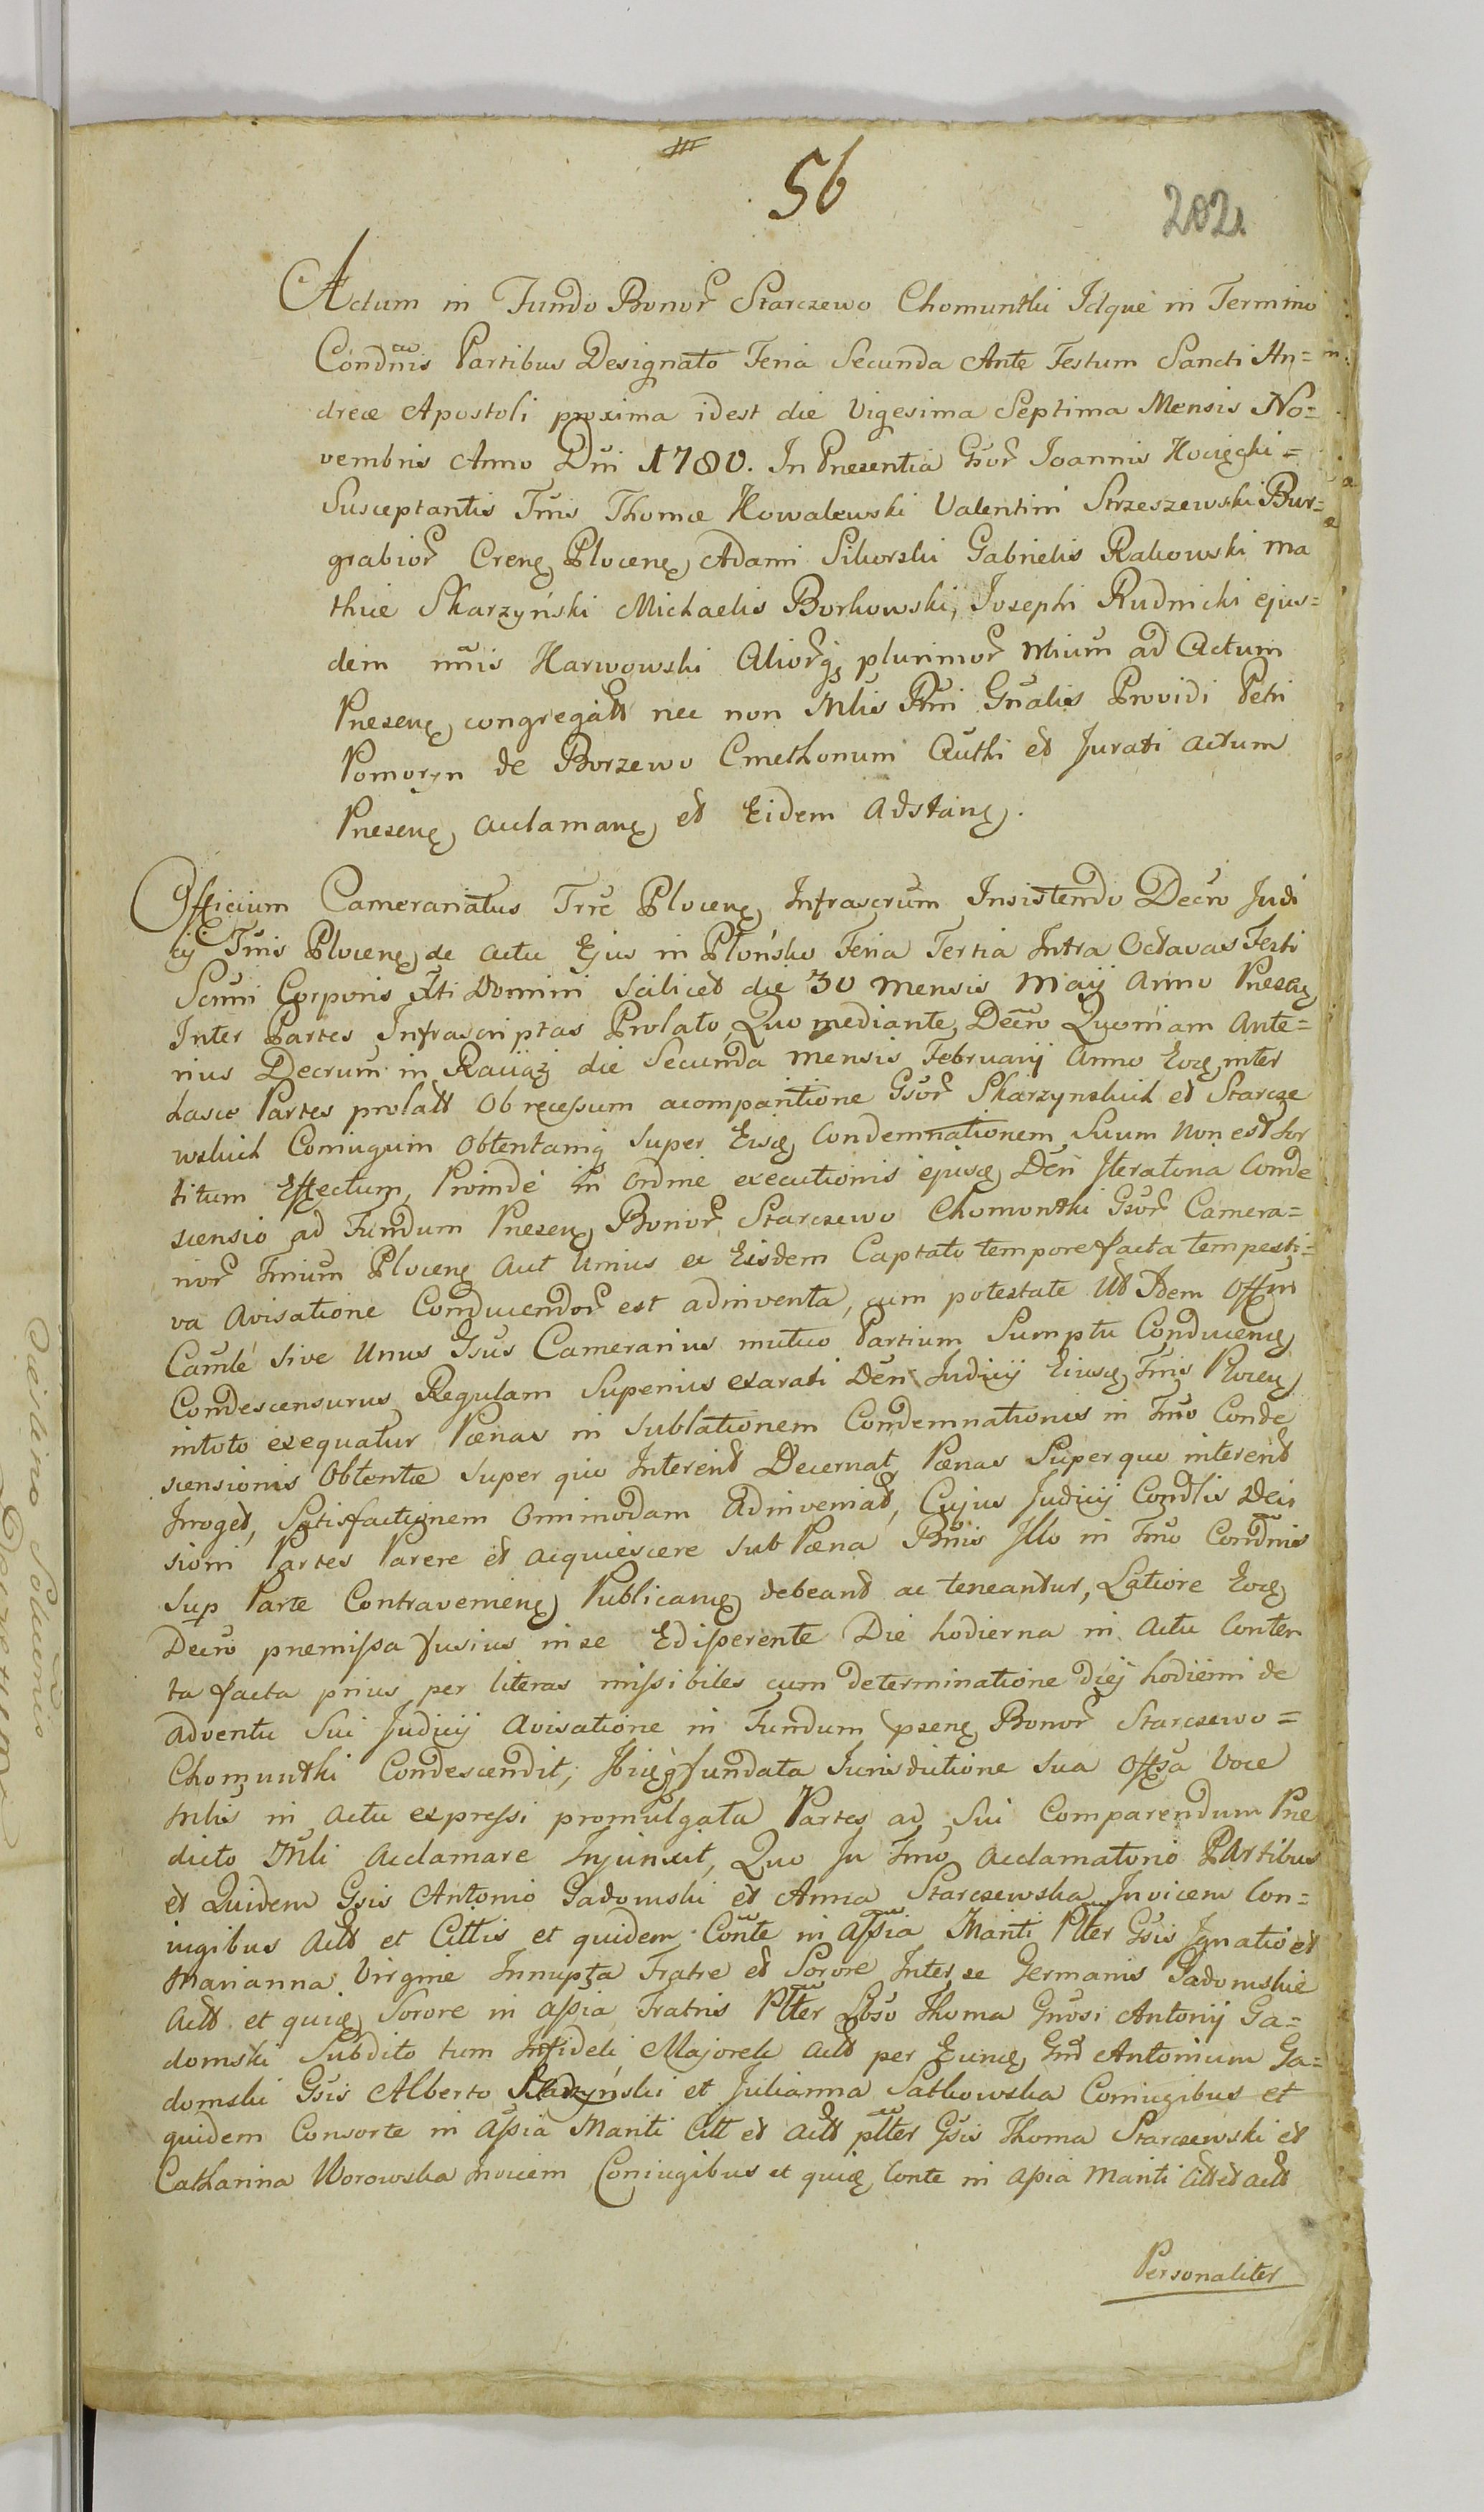 56
202
Actum in Fundo Bonor Starczewo Chomuntki Idque in Termino
Condnis Partibus Designato Feria Secunda Ante Festum Sancti An=
dreæ Apostoli proxima idest die Vigesima Septima Mensis No=
vembris Anno Dni 1780. In Presentia Gsor Joannis Kocięcki=
Susceptantis Tris Thomæ Kowalewski Valentini Strzeszewski Bur=
grabior Crens Plocens Adami Sikorski Gabrielis Rakowski Ma
thiæ Skarzyński Michaelis Borkowski, Josephi Rudnicki ejus=
dem nnis Karwowski Aliorq plurimor Ntium ad Actum
Presens congregatt nec non Mlis Rni Gnalis Providi Petri
Pomorzn de Borzewo Cmethonum Authi et Jurati actum
Presens acclamans et Eidem adstans.
Officium Camerariatus Trræ Plocens Infrascrum Insistendo Decro Judi
cij Tris Plocens de actu Ejus in Płońsko Feria Tertia Intra Octavas Festi
Scmi Corporis Xti Domini Scilicet die 30 Mensis Maij Anno Presen
Inter Partes Infrascriptas Prolato, Quo mediante Decro Quoniam Ante=
rius Decrum in Raciąż die Secunda Mensis Februarij Anno Eoq inter
hasce Partes prolatt Ob recessum acomparitione Gsor Skarzynskich et Starcze
wskich Coniugum Obtentamq Super Eisq Condemnationem Suum non est Sor
titum Effectum, Proinde in Ordine executionis ejusq Decri Iteratoria Conde
scensio ad Fundum Presens Bonor Starczewo Chomontki Gsor Camera=
rior Trium Plocens aut Unius ex Eisdem Captato tempore facta tempesti=
va Avisatione Conducendor est adinventa, cum potestate Ut Idem Offm
Camle sive Unus Gsus Camerarius mutuo Partium Sumptu Conducens
Condescensurus Regulam Superius exarati Decri Judicij Eiusq Tris Plocen
intoto exequatur Pænas in Sublationem Condemnationis in Trno Conde
scensionis Obtentæ Super quo Intererit Decernat Pænas Super quo intererit
Irroget, Satisfactionem Omnimodam Adinveniat, Cujus Judicij Condlis Deci
sioni Partes Parere et acquiescere sub Pæna Bnis Illo in Trno Condnis
Sup Parte Contraveniens Publicans debeant ac teneantur, Latiore Eoq
Decro premissa fusius in se Edisserente Die hodierna in Actu Conten
ta facta prius per literas missibiles cum determinatione diej hodierni de
adventu Sui Judicij Avisatione in Fundum psens Bonor Starczewo=
Chomuntki Condescendit, Ibiq fundata Jurisdictione sua Offsa Voce
Mlis in actu expressi promulgata Partes ad Sui Comparendum Pre
dicto Mli acclamare Injunxit, Quo In Trno acclamatorio Partibus
et Quidem Gsis Antonio Gadomski et Anna Starczewska Invicem Con=
iugibus Actt et Cittis et quidem Conte in assia Mariti Plter Gsis Ignatio et
Marianna Virgine Innupta Fratre et Sorore Inter se Germanis Gadomskie
Actt et quiq Sorore in assia Fratris Plter Lbso Thoma Gnrosi Antonij Ga=
domski Subdito tum Infideli Majorek actt per Eunq Gnr Antonium Ga=
domski Gsis Alberto Skarzyński et Julianna Satkowska Coniugibus et
quidem Consorte in assia Mariti Citt et actt plter Gsis Thoma Starczewski et
Catharina Worowska Invicem Coniugibus et quiq Conte in assia Mariti Citt et actt
Personaliter